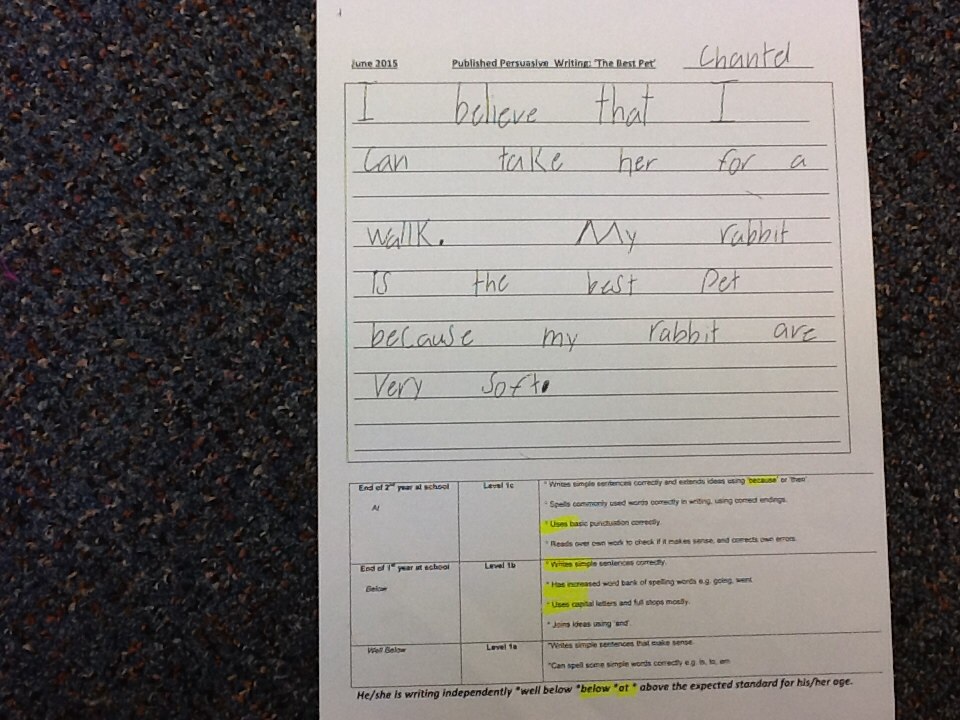 June 2015 Published Persuasive Writing: 'The Best Pet' Chantel
I believe that I
can take her for a
wallk. My rabbit
is the best Pet
because my rabbit are
very soft.
End of 2nd year at school Level 1c * Writes simple sentences correctly and extends ideas using 'because' or 'then'.
At * Spells commonly used words correctly in writing, using correct endings.
* Uses basic punctuation correctly.
* Reads over own work to check if it makes sense, and corrects own errors.
End of 1st year at school Level 1b * Writes simple sentences correctly.
Below * Has increased word bank of spelling words e.g. going, went.
* Uses capital letters and full stops mostly.
* Joins ideas using 'and'.
Well Below Level 1a *Writes simple sentences that make sense.
*Can spell some simple words correctly e.g. is, to, am
He/she is writing independently *well below *below *at * above the expected standard for his/her age.